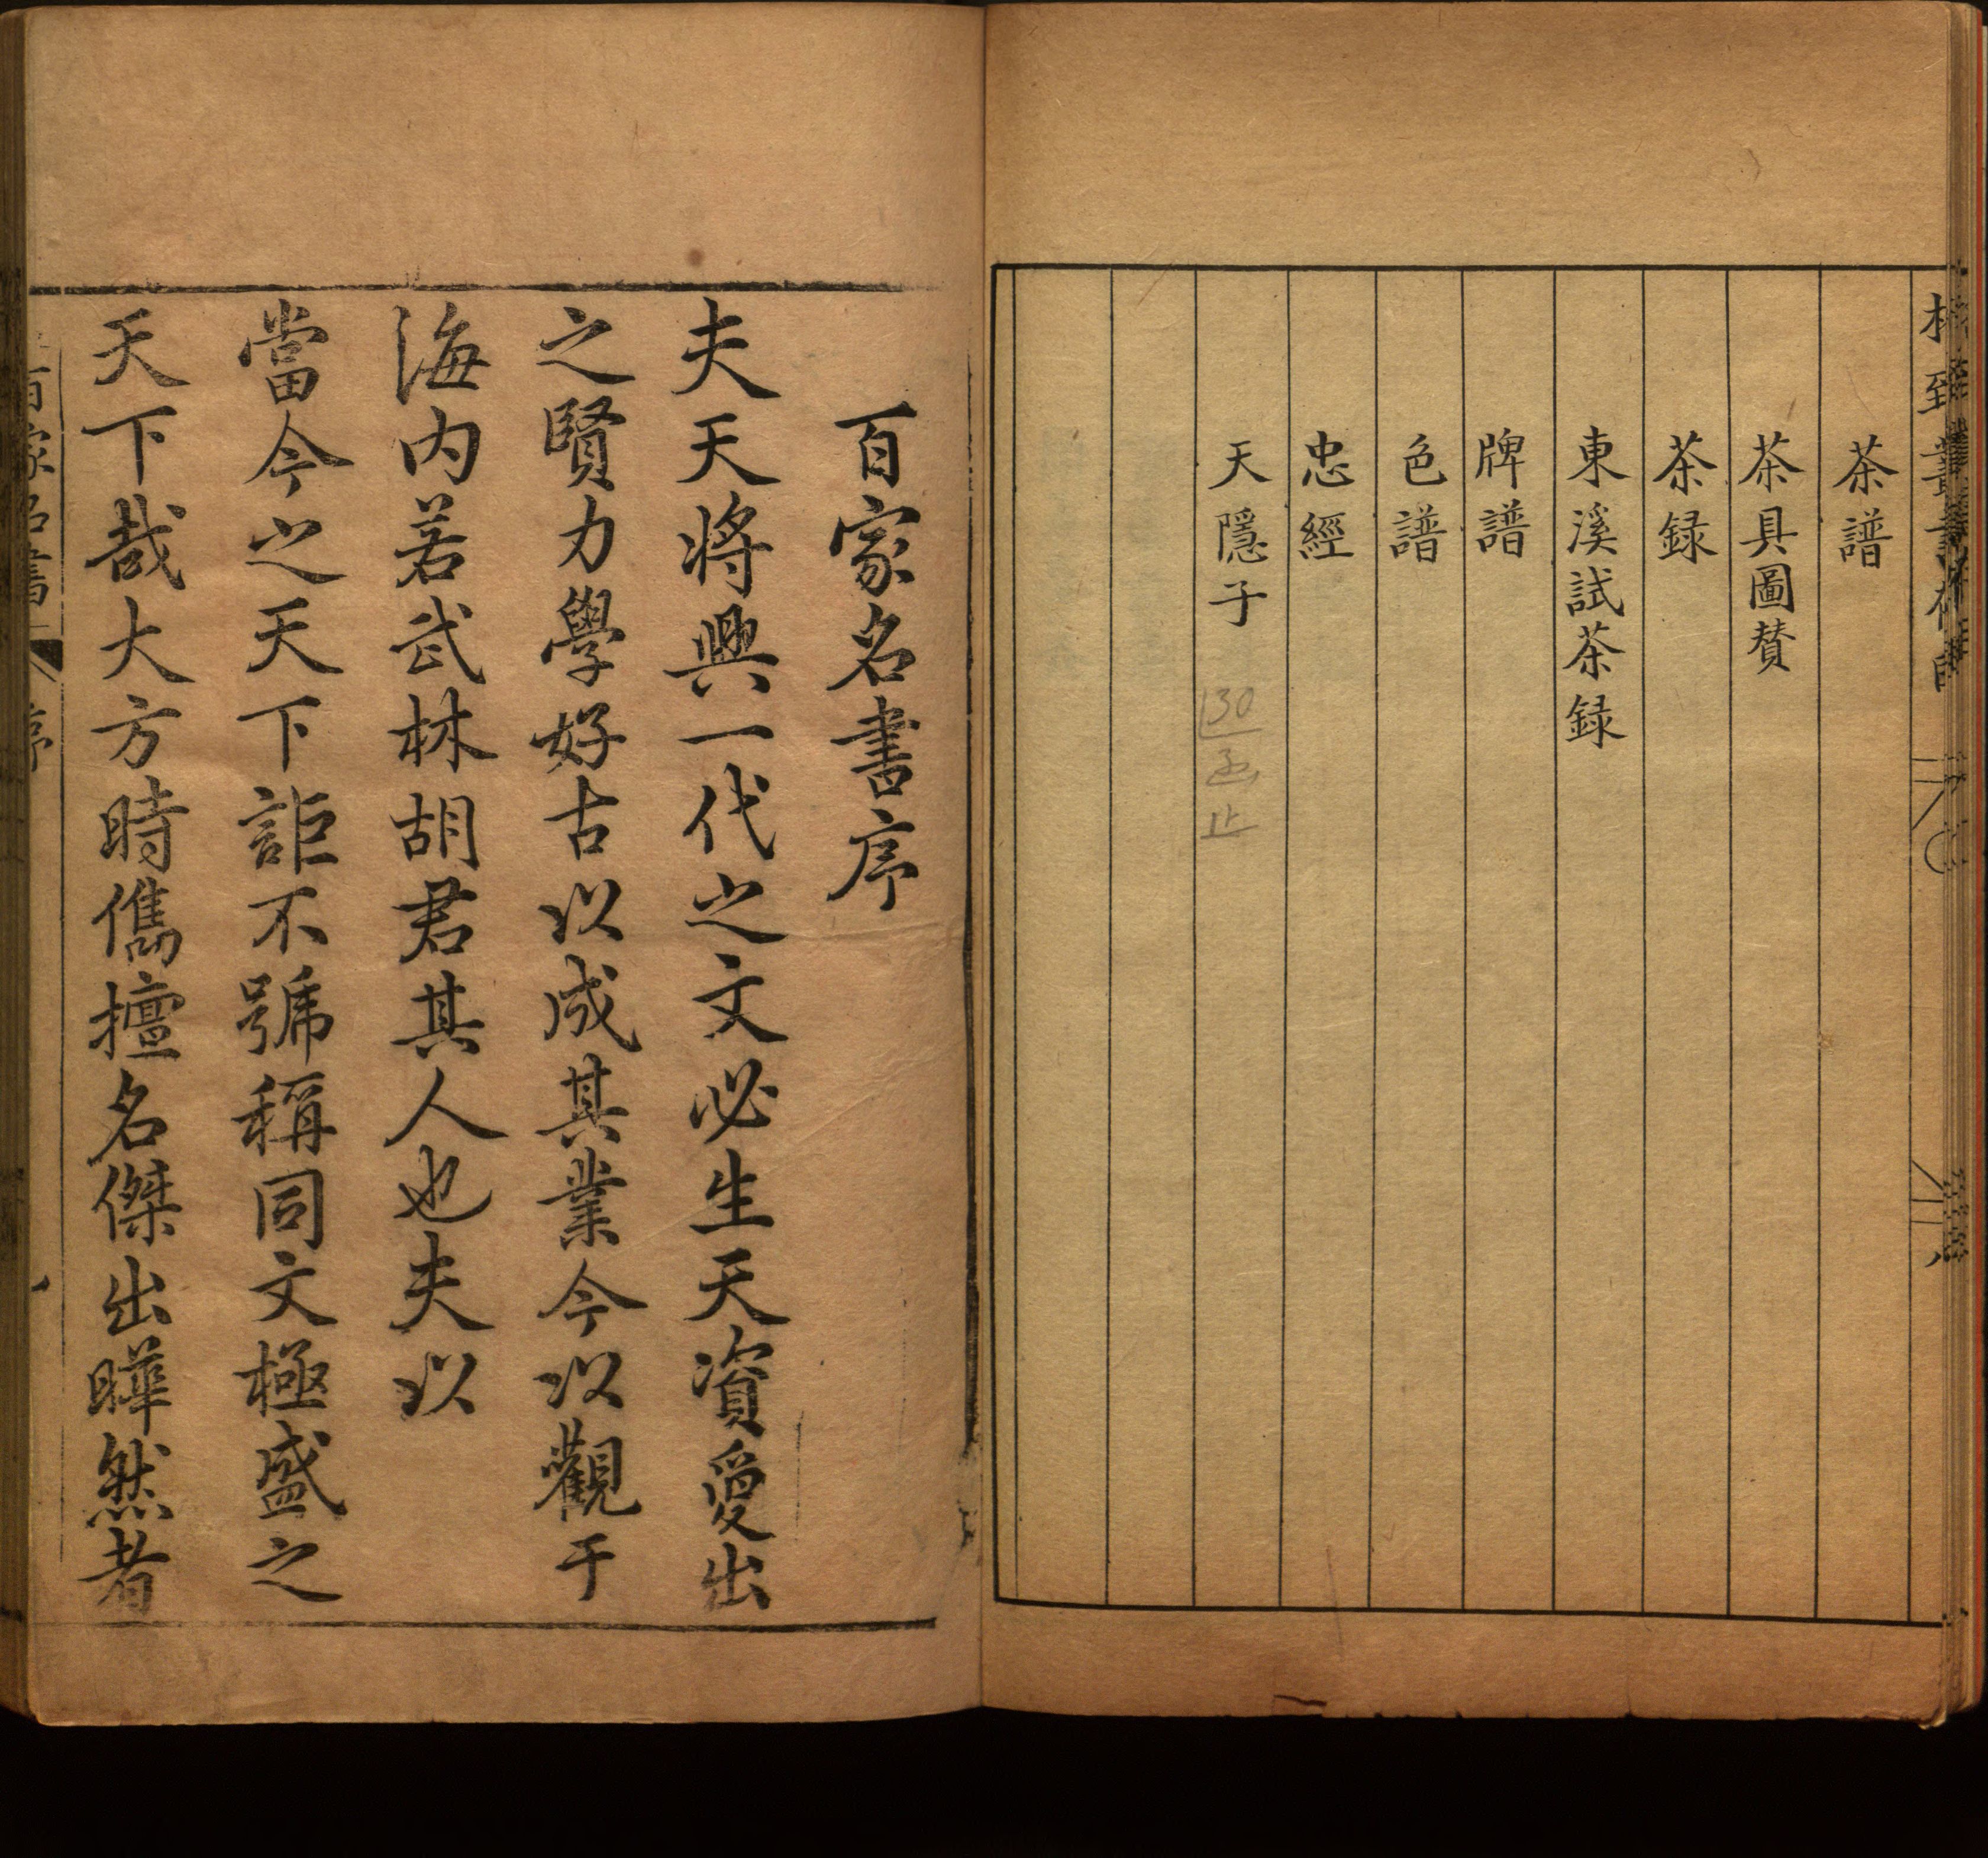 茶譜
茶具圖賛
茶録
東溪試茶録
牌譜
色譜
忠經
天隱子
130函止
百家名書序
夫天將興一代之文必生天資愛出
之賢力學好古以成其業今以觀于
海内若武林胡君其人也夫以
當今之天下詎不號稱同文極盛之
天下哉大方時儁擅名傑出曄然者
百家名書
序